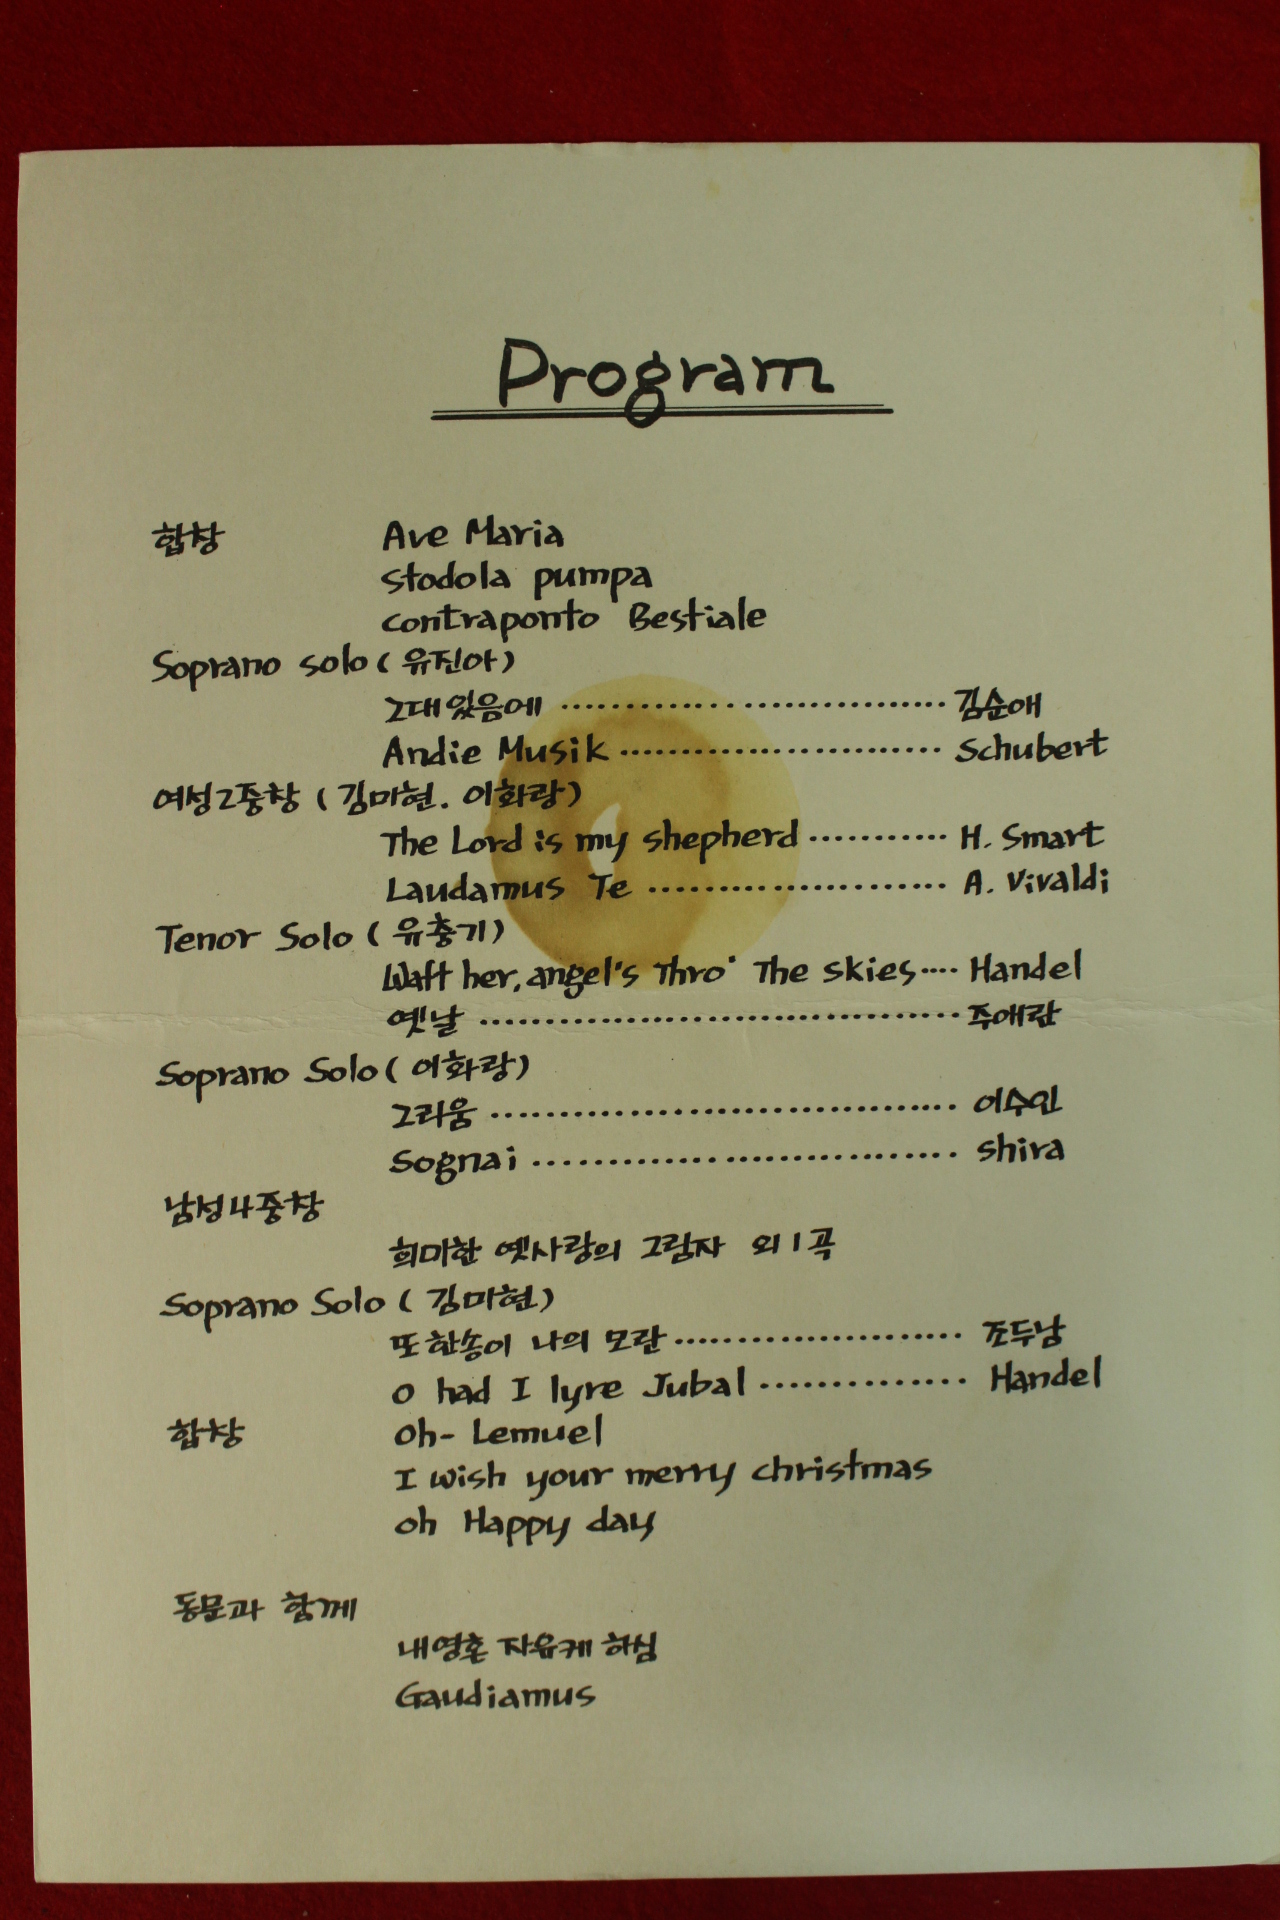 Program
합창 Ave Maria
Stodola pumpa
contraponto Bestiale
Soprano solo ( 유진아 )
그대있음에 ································ 김순애
Andie Musik ··························· Schubert
여성2중창 ( 김미현. 이화랑 )
The Lord is my shepherd ············ H. Smart
Laudamus Te ························ A. Vivaldi
Tenor Solo ( 유충기 )
Waft her, angel's Thro' The skies ···· Handel
옛날 ········································ 주애란
Soprano Solo ( 이화랑 )
그리움 ······································ 이수인
Sognai ··································· Shira
남성4중창
희미한 옛사랑의 그림자 외 1곡
Soprano Solo ( 김미현 )
또한송이 나의 모란 ························ 조두남
O had I lyre Jubal ··············· Handel
합창 Oh- Lemuel
I wish your merry christmas
oh Happy day
동문과 함께
내영혼 자유케 하심
Gaudiamus